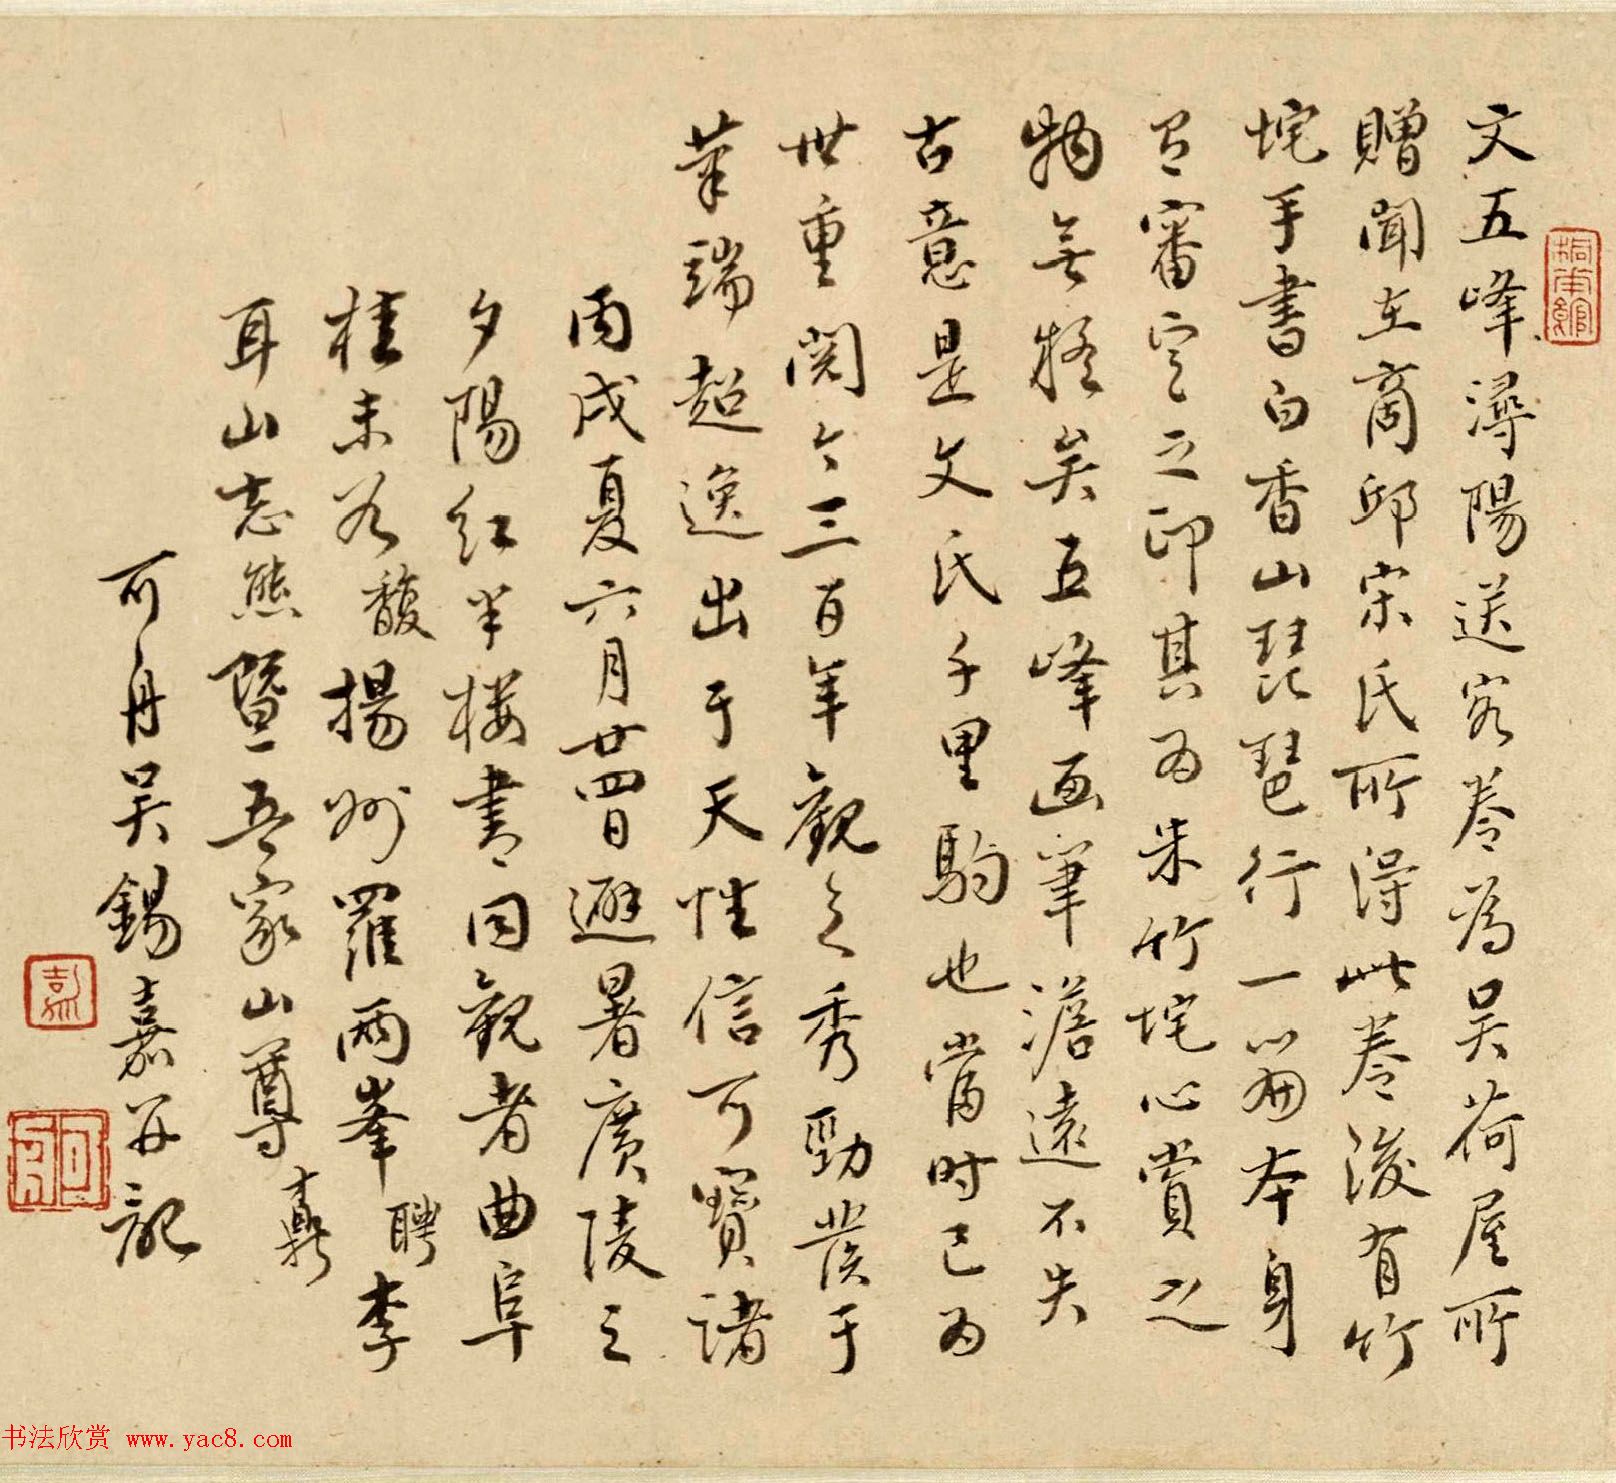 文五峰潯陽送客卷為吳荷屋所
贈聞在商邱宋氏所得此卷後有竹
垞手書白香山琵琶行一篇本身
有審定之印其為朱竹垞心賞之
物無疑矣五峰画筆澹遠不失
古意是文氏千里駒也當时已为
世重閱今三百年觀之秀勁發于
筆端超逸出于天性信可寶諸
丙戌夏六月廿四日避暑廣陵之
夕陽红半楼書同觀者曲阜
桂未谷馥揚州羅兩峯聘李
耳山志熊暨吾家山尊鼒
可舟吴錫嘉并記
书法欣赏 www.yac8.com